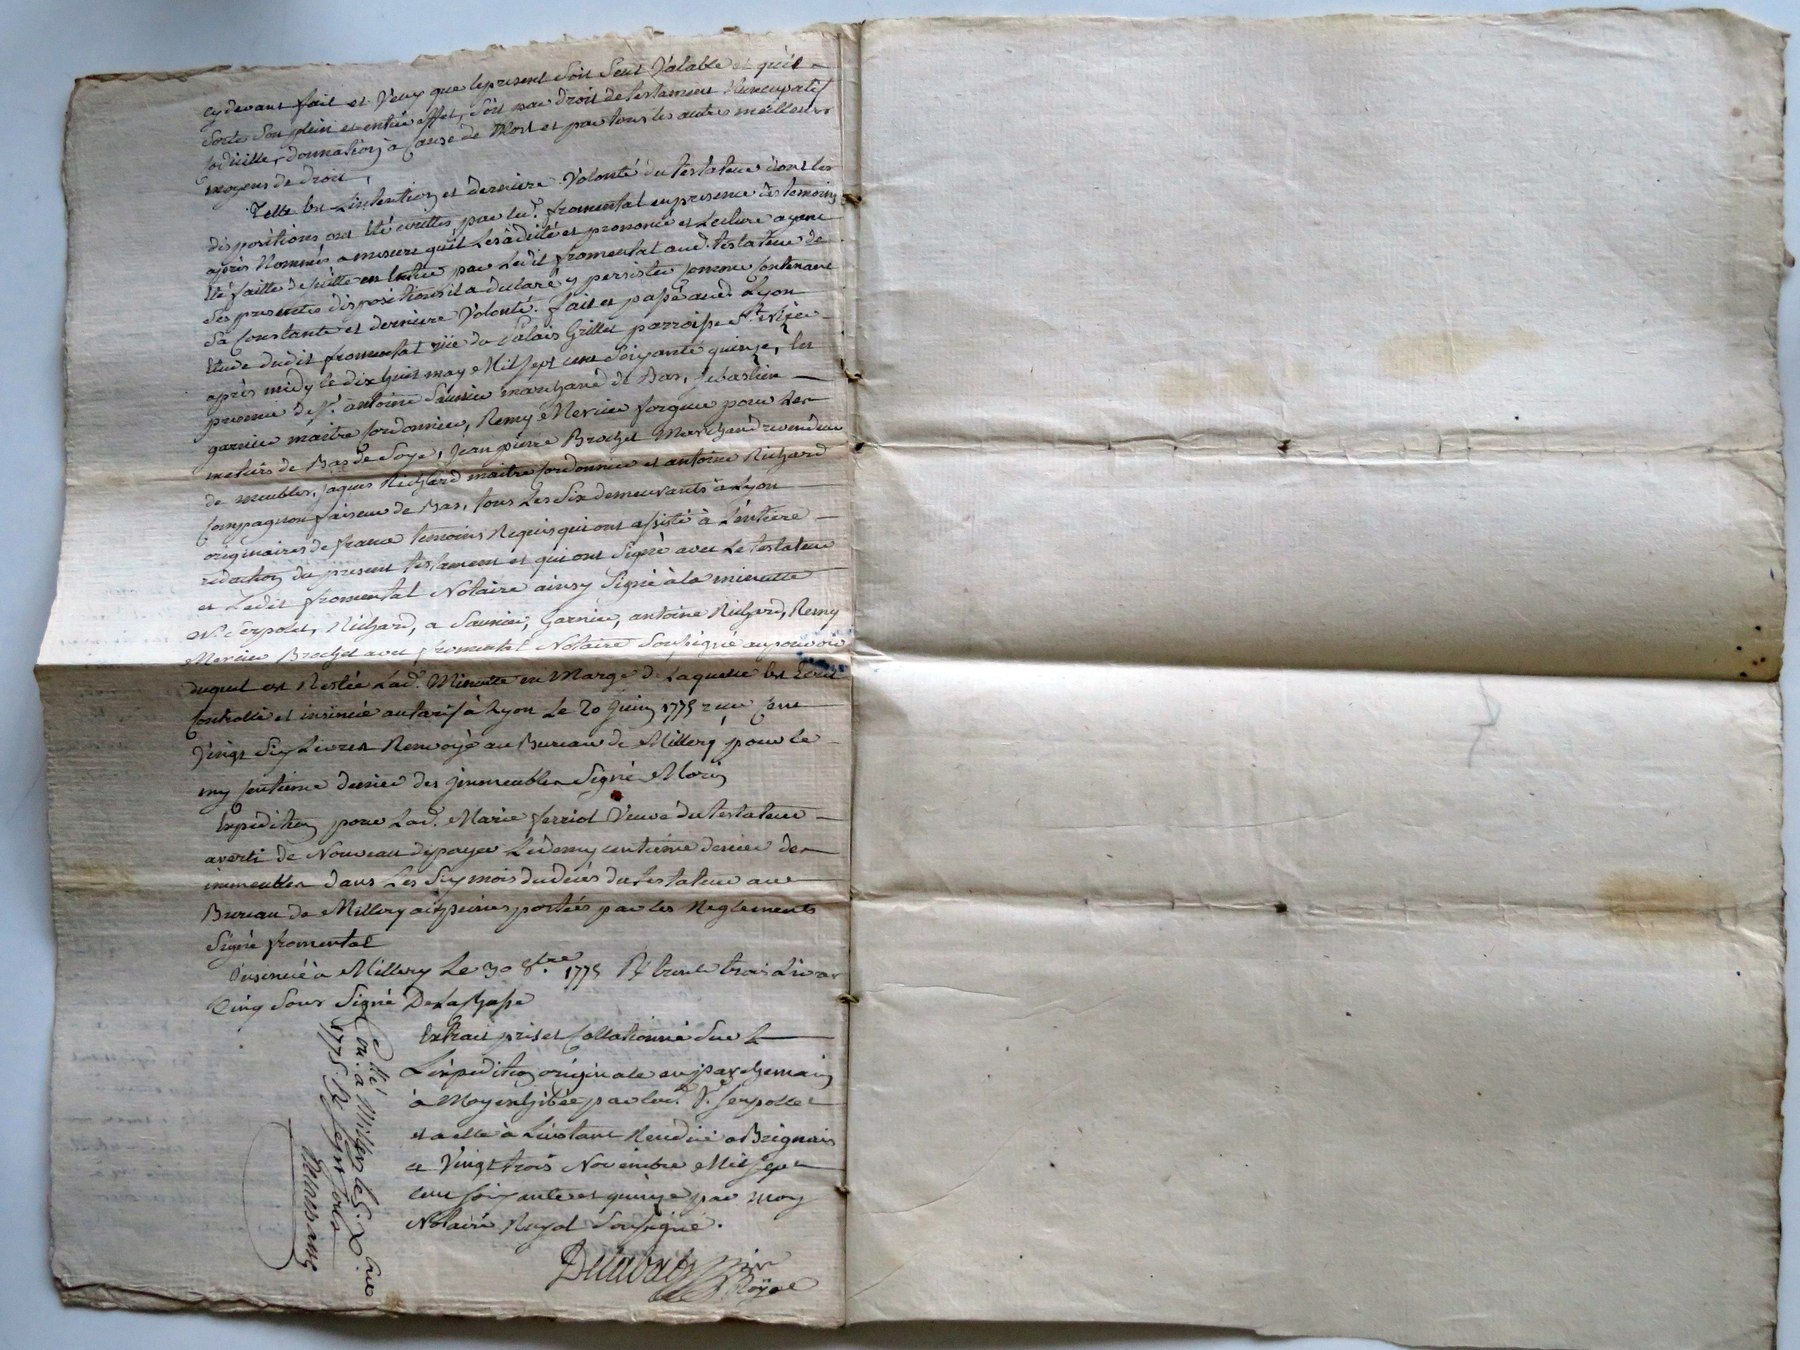 cy devant fait et Veux que le present Soit Seul Valable et qu'il
Sorte Son plein et entier effet, Soit par droit de testament Nuncupatif
Codicille, donnation à Cause de Mort et par tous les autres meilleurs
moyens de droit,
Telle est L'intention et derniere Volonté du testateur dont les
dispositions ont été écrittes par led. fromental en presence des temoins
après Nommés a mesure qu'il Les a dicté et prononcé et Lecture ayant
été faitte de Suitte en Entier par Ledit fromental aud. testateur de
Ses presentes dispositions il a declaré y persister Comme Contenant
Sa Constante et derniere Volonté. fait et passé aud. Lyon
Etude dudit fromental rüe du Palais Grillet parroisse St. Nizier
après midy le dix huit may Mil Sept cent Soixante quinze, en
presence de Sr. antoine Saunier marchand de Bas, Sebastien
garnier maitre Cordonnier, Remy Mercier forgeur pour Les
metiers de Bas de Soye, Jean pierre Brochet Marchand revendeur
de meubles, Jaques Richard maitre Cordonnier et antoine Richard
Compagnon faiseur de Bas, tous Les Six demeurants à Lyon
originaires de france temoins Requis qui ont assisté à L'entiere
redaction du present testament et qui ont Signé avec Le testateur
et Ledit fromental Notaire ainsy Signé à la minutte
Serpolet, Richard, a Saunier, Garnier, antoine Richard, Remy
Mercier Brochet avec fromental Notaire Soussigné au pouvoir
duquel est Restée Lad. Minutte en Marge de Laquelle est Ecrit
Controllé et insinué au tarif à Lyon Le 20 Juin 1775 recu Cent
Vingt Six Livres Renvoyé au Bureau de Millery pour le
my Centieme denier des Immeubles Signé Morin
Expedition pour Lad. Marie ferriol Veuve du testateur
averti de Nouveau de payer Le demy centième denier des
immeubles dans Les Six mois du deces du testateur au
Bureau de Millery aux peines portées par les Reglements
Signé fromental
Insinué à Millery Le 30 8bre 1775 R. trente trois Livres
Cinq Sous Signé Delachasse
Extrait pris et Collationné Sur
L'expedition originale en parchemin
à Moy exhibée par lad. Ve. Serpollet
et a elle à L'instant Rendüe a Brignais
ce Vingt trois Novembre Mil Sept
cent soixante et quinze par moy
Notaire Royal Soussigné.
Royal
Con. à Millery le 5. Xbre
1775. R. Sept sous